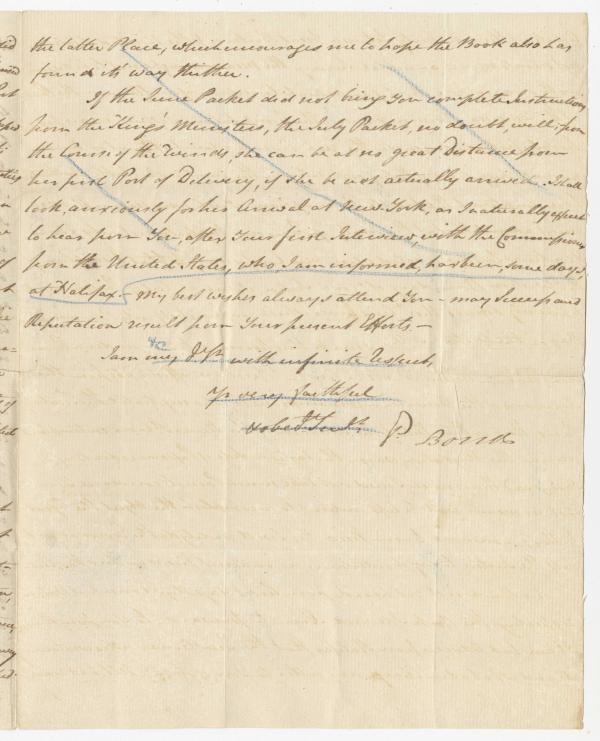 the latter Place, which encourages me to hope the Book also has
found it's way thither.
If the June Packet did not bring You complete Instructions
from the King's Ministers, the July Packet, no doubt, will; from
the Course of the Winds, she can be at no great Distance from
her first Port of Delivery, if she be not actually arrived. I shall
look, anxiously for her Arrival at New York, as I naturally expect
to hear from You, after Your first Interview, with the Commissioner
from the United States, who, I am informed, has been, some days,
at Halifax. – My best wishes always attend You – may Success and
Reputation result from Your present Efforts. –
I am my Dr Sir with infinite Respect,
Yr very faithful
P. Bond